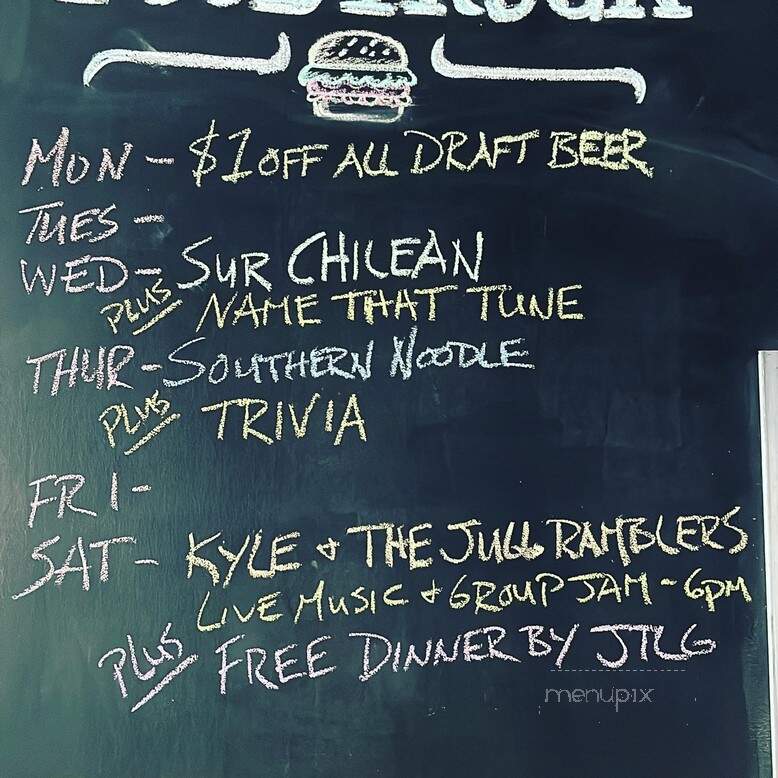 FOOD TRUCK
MON - $1 OFF ALL DRAFT BEER
TUES -
WED - SUR CHILEAN
PLUS NAME THAT TUNE
THUR - SOUTHERN NOODLE
PLUS TRIVIA
FRI -
SAT - KYLE & THE JUGG RAMBLERS
LIVE MUSIC & GROUP JAM - 6PM
PLUS FREE DINNER BY JTLG
menupix